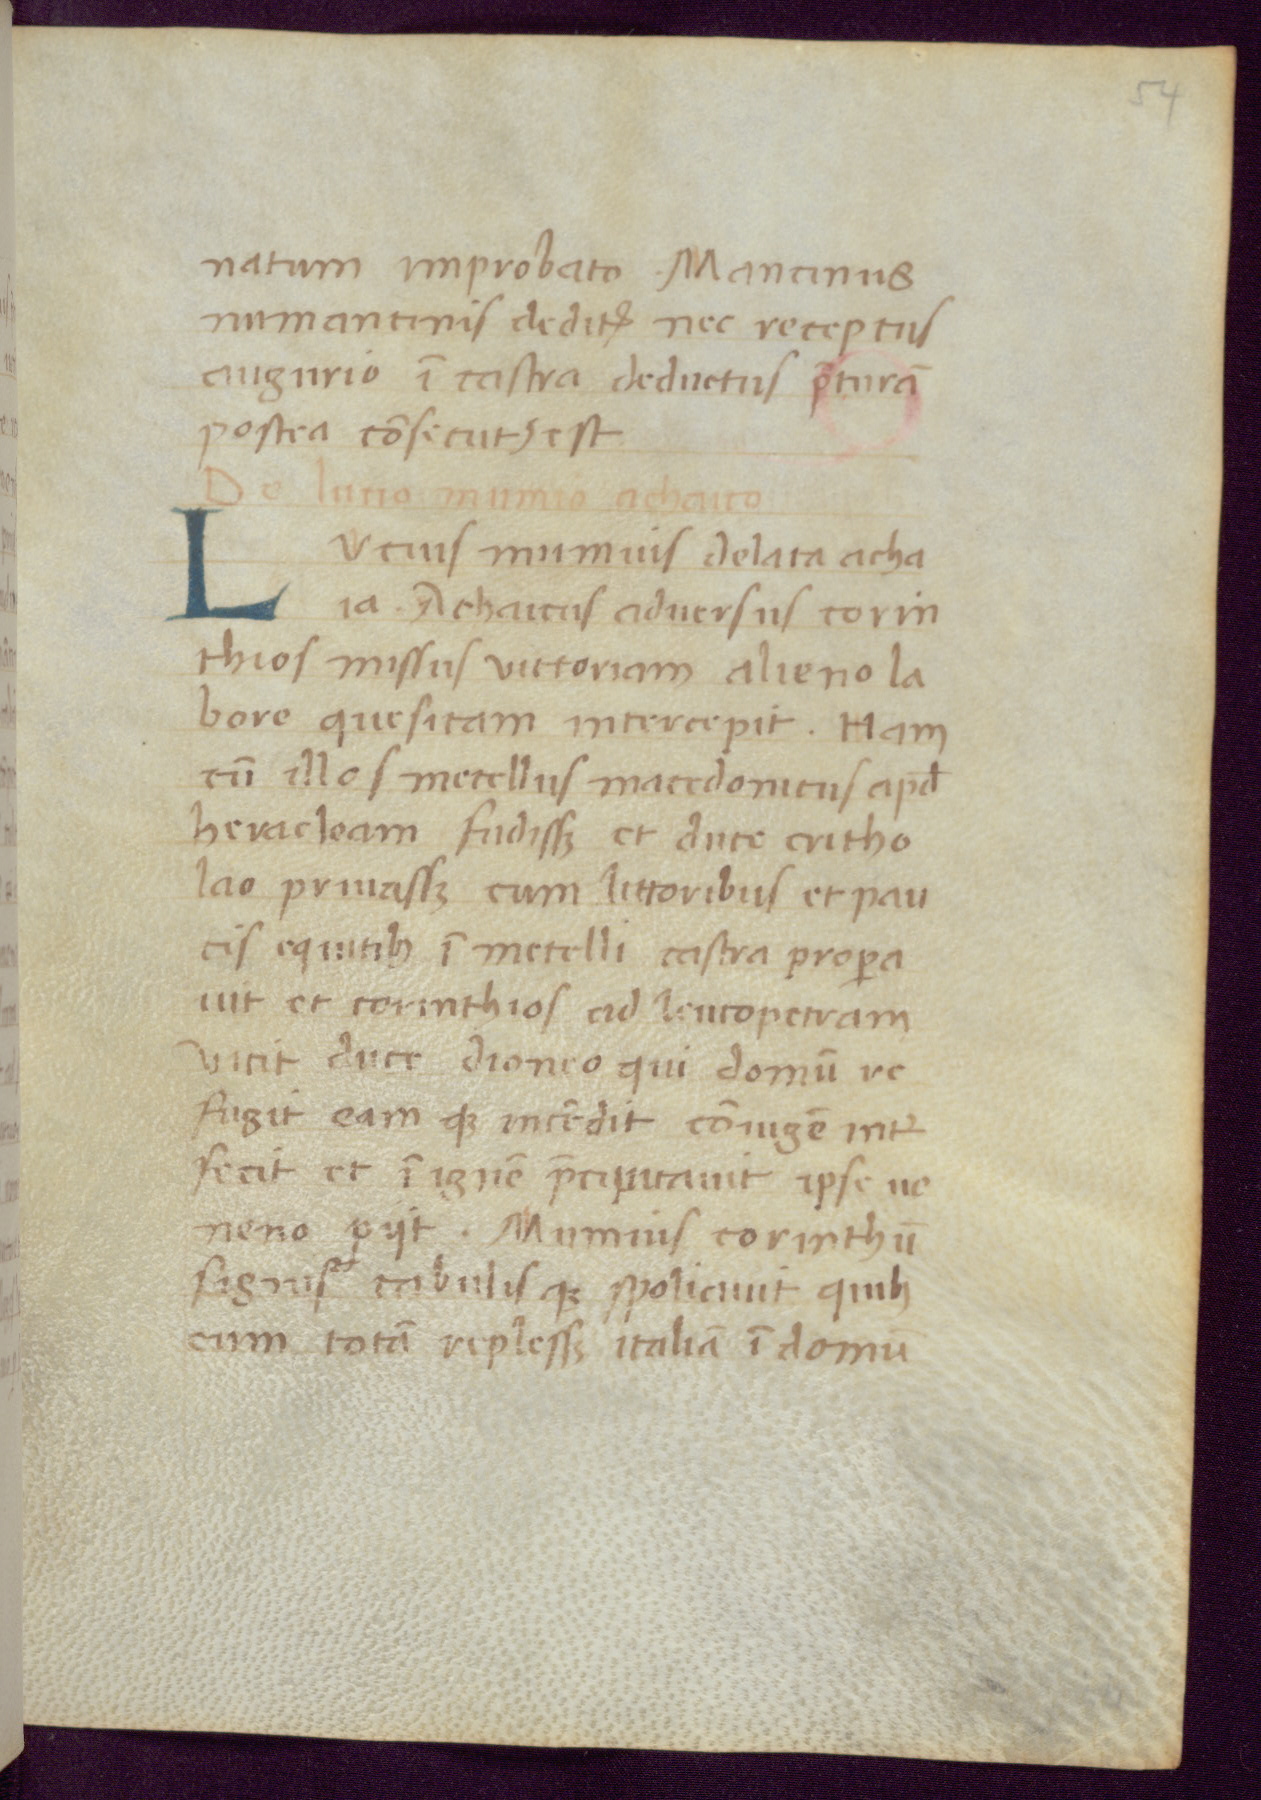 54
natum improbato. Mancinus
numantinis deditꝰ nec receptus
augurio ī castra deductus p̄turā
postea cōsecutꝰ est
De lucio mumio achaico
Lucius mumius delata acha
ia. Achaicus aduersus corin
thios missus victoriam alieno la
bore quesitam intercepit. Nam
cū illos metellus macedonicus apd̄
heracleam fudissꝫ et duce critho
lao priuassꝫ cum lictoribus et pau
cis equitibꝫ ī metelli castra prop̱a
uit et corinthios ad leucopetram
vicit duce dioneo qui domū re
fugit eam qꝫ incēdit cōiugē int̄
fecit et ī ignē p̄cipitauit ipse ue
neno ꝑijt. Mumius corinthū
signis tabulis qꝫ spoliauit quibꝫ
cum totā replessꝫ italiā ī domū